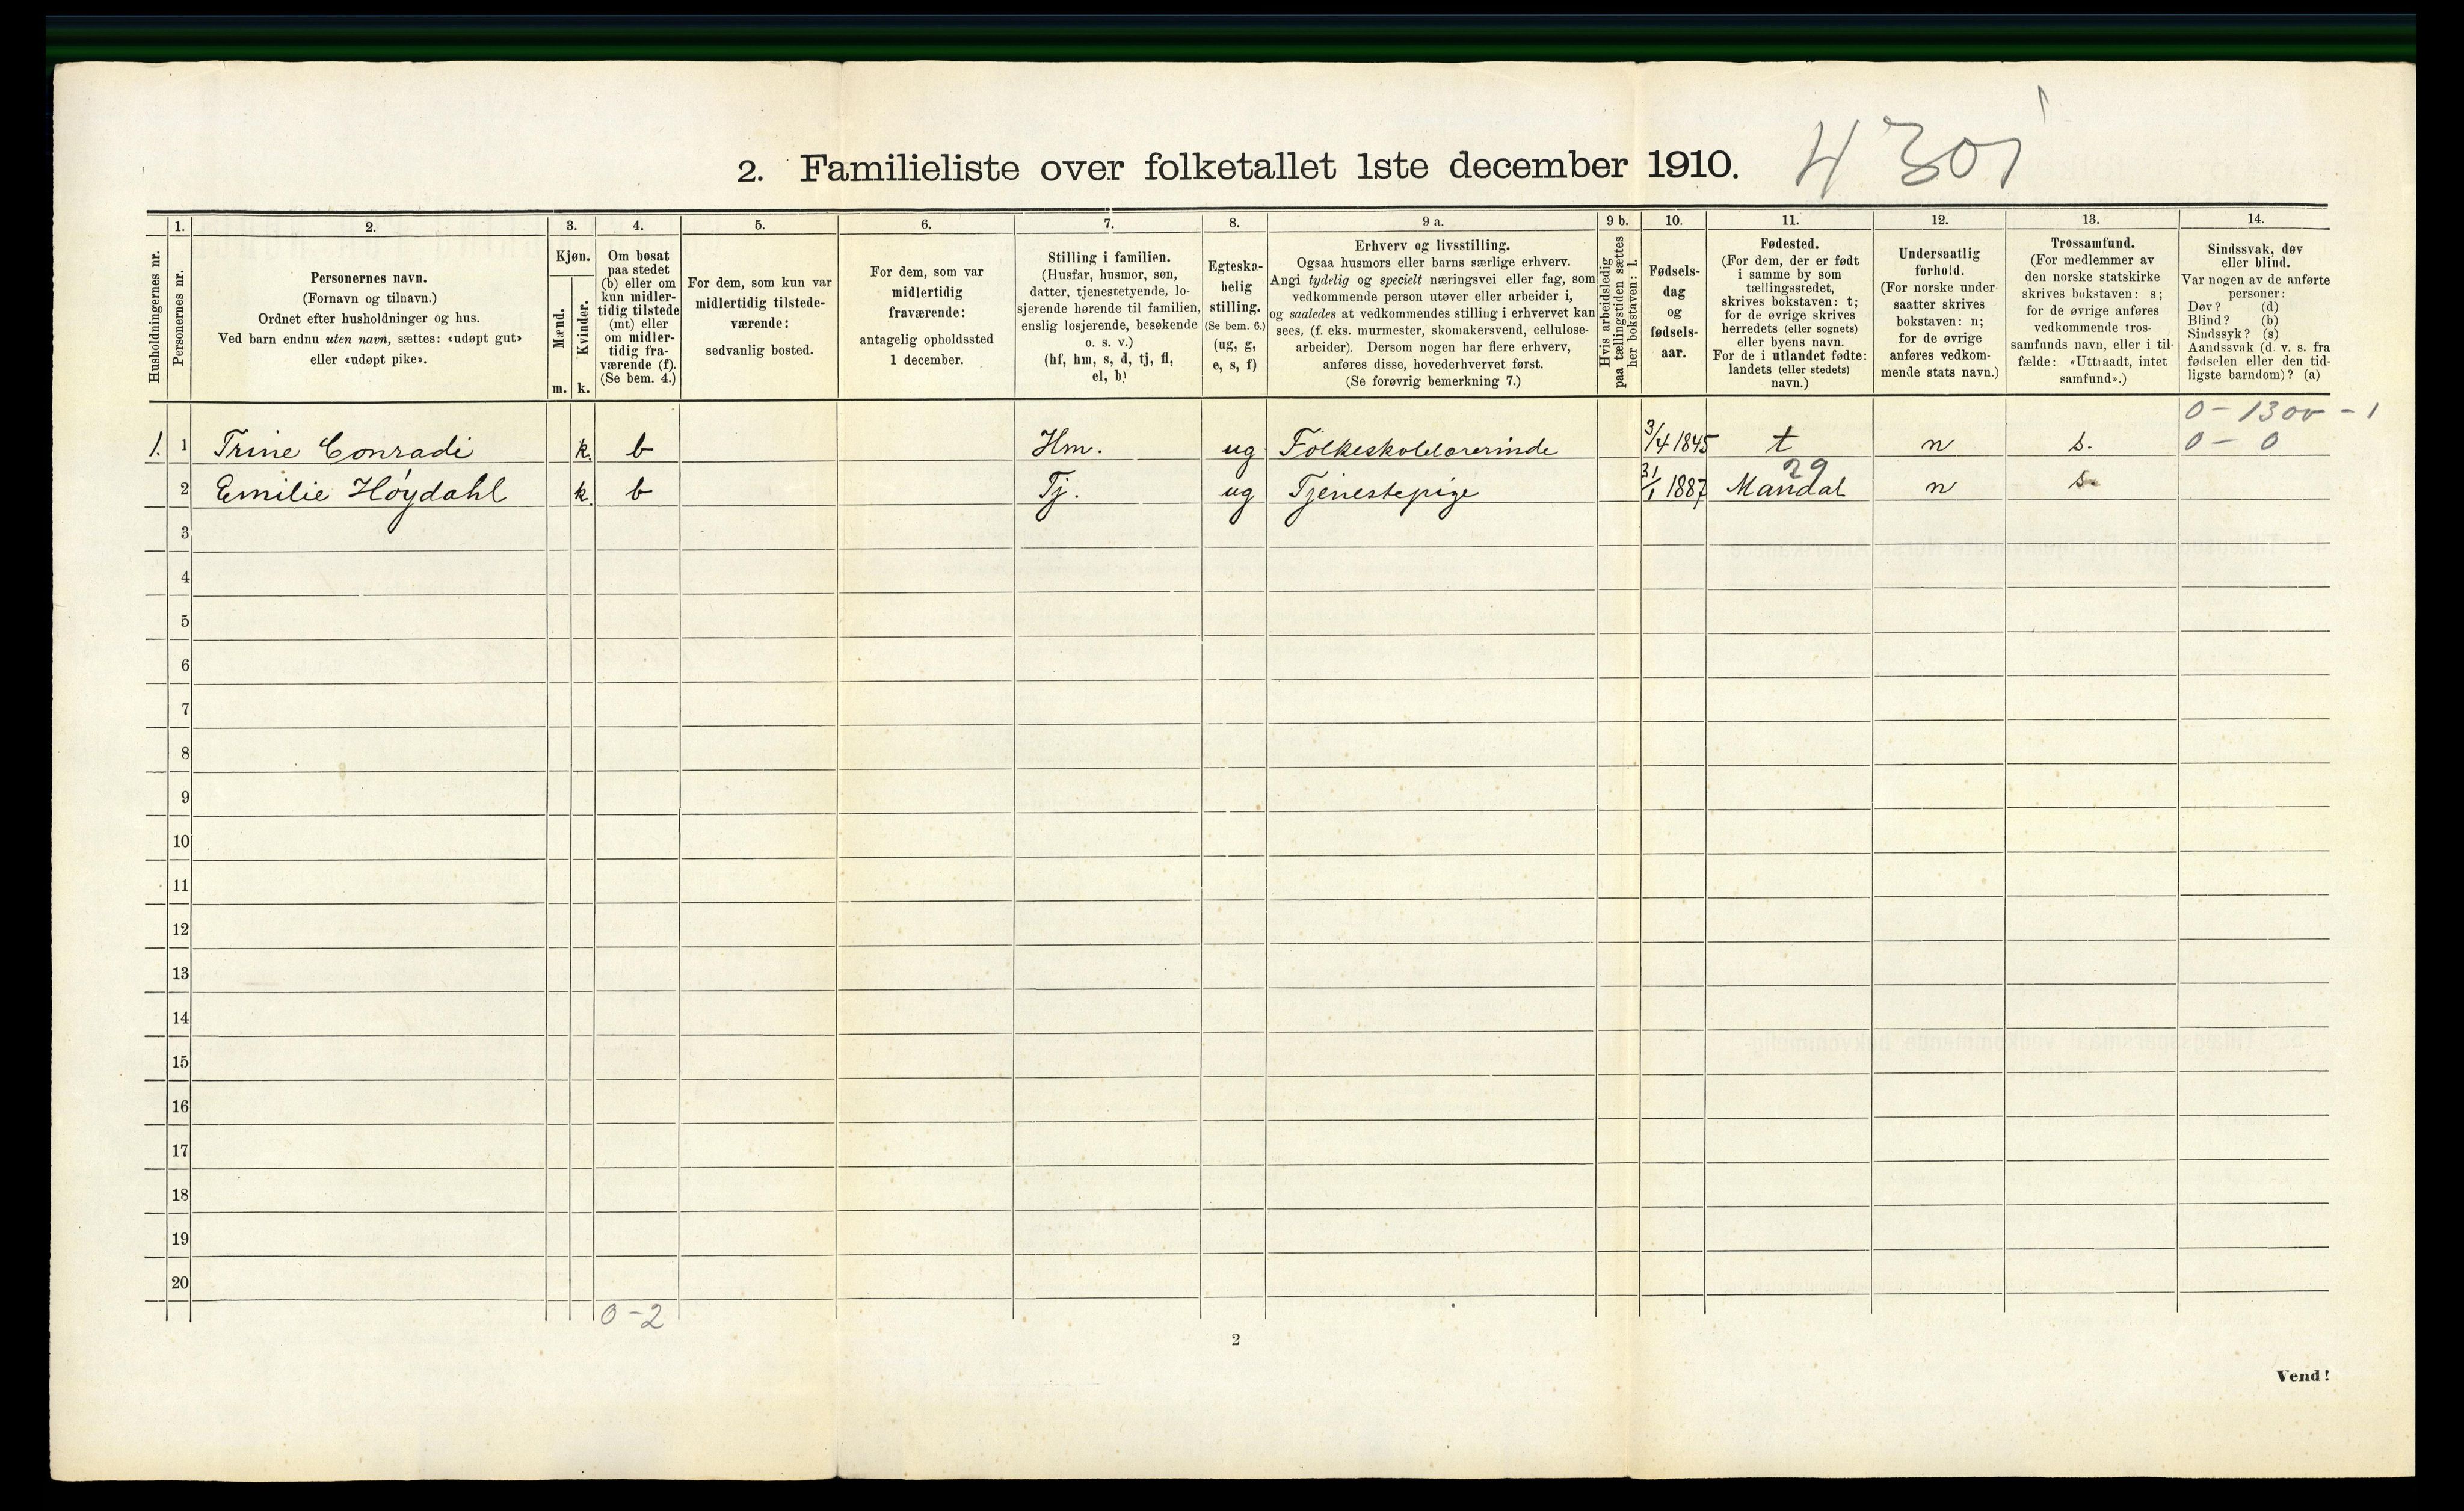 2. Familieliste over folketallet 1ste december 1910.
Husholdningernes nr.
1.
Personernes nr.
2.
Personernes navn.
(Fornavn og tilnavn.)
Ordnet efter husholdninger og hus.
Ved barn endnu uten navn, sættes: «udøpt gut»
eller «udøpt pike».
3.
Kjøn.
Mænd.
m.
Kvinder.
k.
4.
Om bosat
paa stedet
(b) eller om
kun midler-
tidig tilstede
(mt) eller
om midler-
tidig fra-
værende (f).
(Se bem. 4.)
5.
For dem, som kun var
midlertidig tilstede-
værende:
sedvanlig bosted.
6.
For dem, som var
midlertidig
fraværende:
antagelig opholdssted
1 december.
7.
Stilling i familien.
(Husfar, husmor, søn,
datter, tjenestetyende, lo-
sjerende hørende til familien,
enslig losjerende, besøkende
o. s. v.)
(hf, hm, s, d, tj, fl,
el, b)
8.
Egteska-
belig
stilling.
(Se bem. 6.)
(ug, g,
e, s, f)
9 a.
Erhverv og livsstilling.
Ogsaa husmors eller barns særlige erhverv.
Angi tydelig og specielt næringsvei eller fag, som
vedkommende person utøver eller arbeider i,
og saaledes at vedkommendes stilling i erhvervet kan
sees, (f. eks. murmester, skomakersvend, cellulose-
arbeider). Dersom nogen har flere erhverv,
anføres disse, hovederhvervet først.
(Se forøvrig bemerkning 7.)
9 b.
Hvis arbeidsledig
paa tællingstiden sættes
her bokstaven: l.
10.
Fødsels-
dag
og
fødsels-
aar.
11.
Fødested.
(For dem, der er født
i samme by som
tællingsstedet,
skrives bokstaven: t;
for de øvrige skrives
herredets (eller sognets)
eller byens navn.
For de i utlandet fødte:
landets (eller stedets)
navn.)
12.
Undersaatlig
forhold.
(For norske under-
saatter skrives
bokstaven: n;
for de øvrige
anføres vedkom-
mende stats navn.)
13.
Trossamfund.
(For medlemmer av
den norske statskirke
skrives bokstaven: s;
for de øvrige anføres
vedkommende tros-
samfunds navn, eller i til-
fælde: «Uttraadt, intet
samfund».)
14.
Sindssvak, døv
eller blind.
Var nogen av de anførte
personer:
Døv? (d)
Blind? (b)
Sindssyk? (s)
Aandssvak (d. v. s. fra
fødselen eller den tid-
ligste barndom)? (a)
1. 1 Trine Conradi k. b Hm. ug Folkeskolelærerinde 3/4 1845 t n s. 0 - 0
29
2 Emilie Høydahl k. b Tj. ug Tjenestepige 31/1 1887 Mandal n s.
3
4
5
6
7
8
9
10
11
12
13
14
15
16
17
18
19
20
0 - 2
2
Vend!